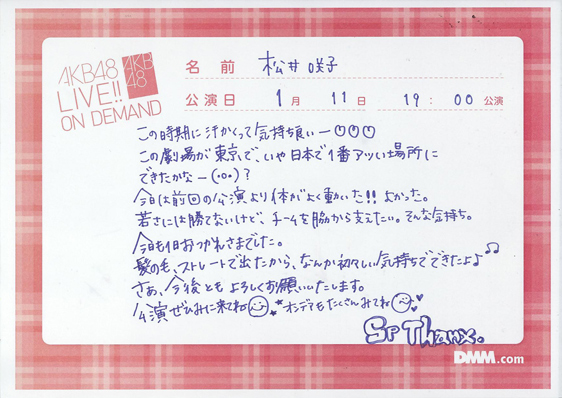 AKB48
LIVE!!
ON DEMAND
AKB
48
名前 松井咲子
公演日 1月 11日 19:00公演
この時期に汗かくって気持ち良いー
この劇場が東京で、いや日本で1番アツい場所に
できたかなー(・o・)?
今日は前回の公演より体がよく動いた!!よかった。
若さには勝てないけど、チームを脇から支えたい。そんな気持ち。
今日も1日おつかれさまでした。
髪の毛、ストレートで出たから、なんか初々しい気持ちでできたよ♪♫
さぁ、今後ともよろしくお願いいたします。
公演ぜひみに来てね オンデマもたくさんみてね
Sp Thanx.
DMM.com